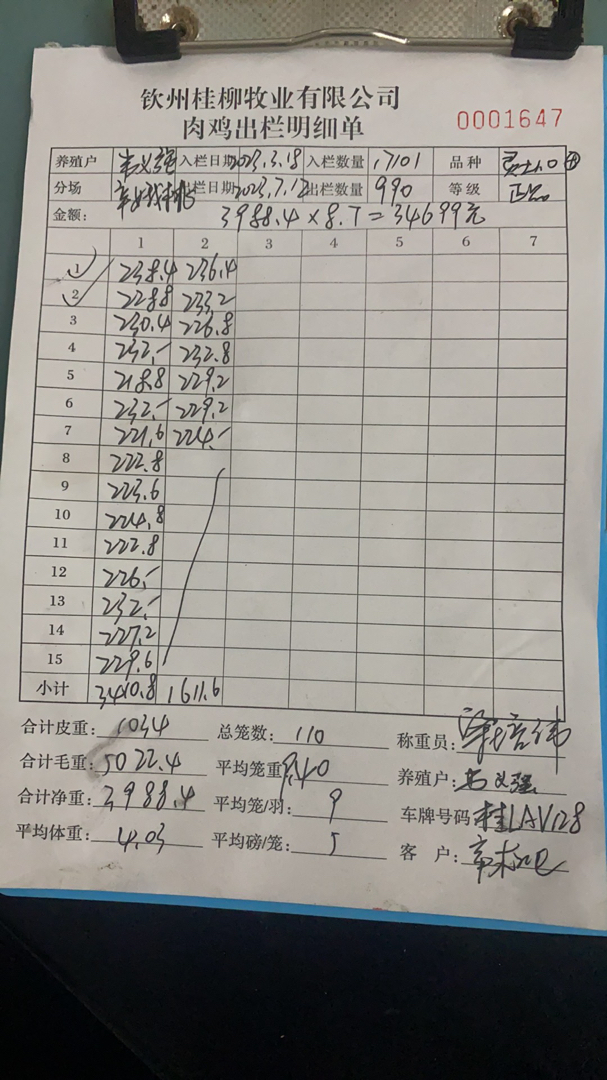 钦州桂柳牧业有限公司
肉鸡出栏明细单
0001647
养殖户 韦义强 入栏日期 2023.3.18 入栏数量 17101 品种
分场 出栏日期 2023.7.12 出栏数量 990 等级 正品
金额: 3988.4×8.7=34699元
1 2 3 4 5 6 7
1 238.4 236.4
2 228.8 233.2
3 230.4 226.8
4 232.- 232.8
5 218.8 229.2
6 232.- 229.2
7 221.6 224.-
8 222.8
9 223.6
10 224.8
11 222.8
12 226.-
13 232.-
14 227.2
15 229.6
小计 3410.8 1611.6
合计皮重: 1034 总笼数: 110 称重员:
合计毛重: 5022.4 平均笼重: 9.40 养殖户: 韦义强
合计净重: 3988.4 平均笼/羽: 9 车牌号码 桂LAV128
平均体重: 4.03 平均磅/笼: 5 客 户: